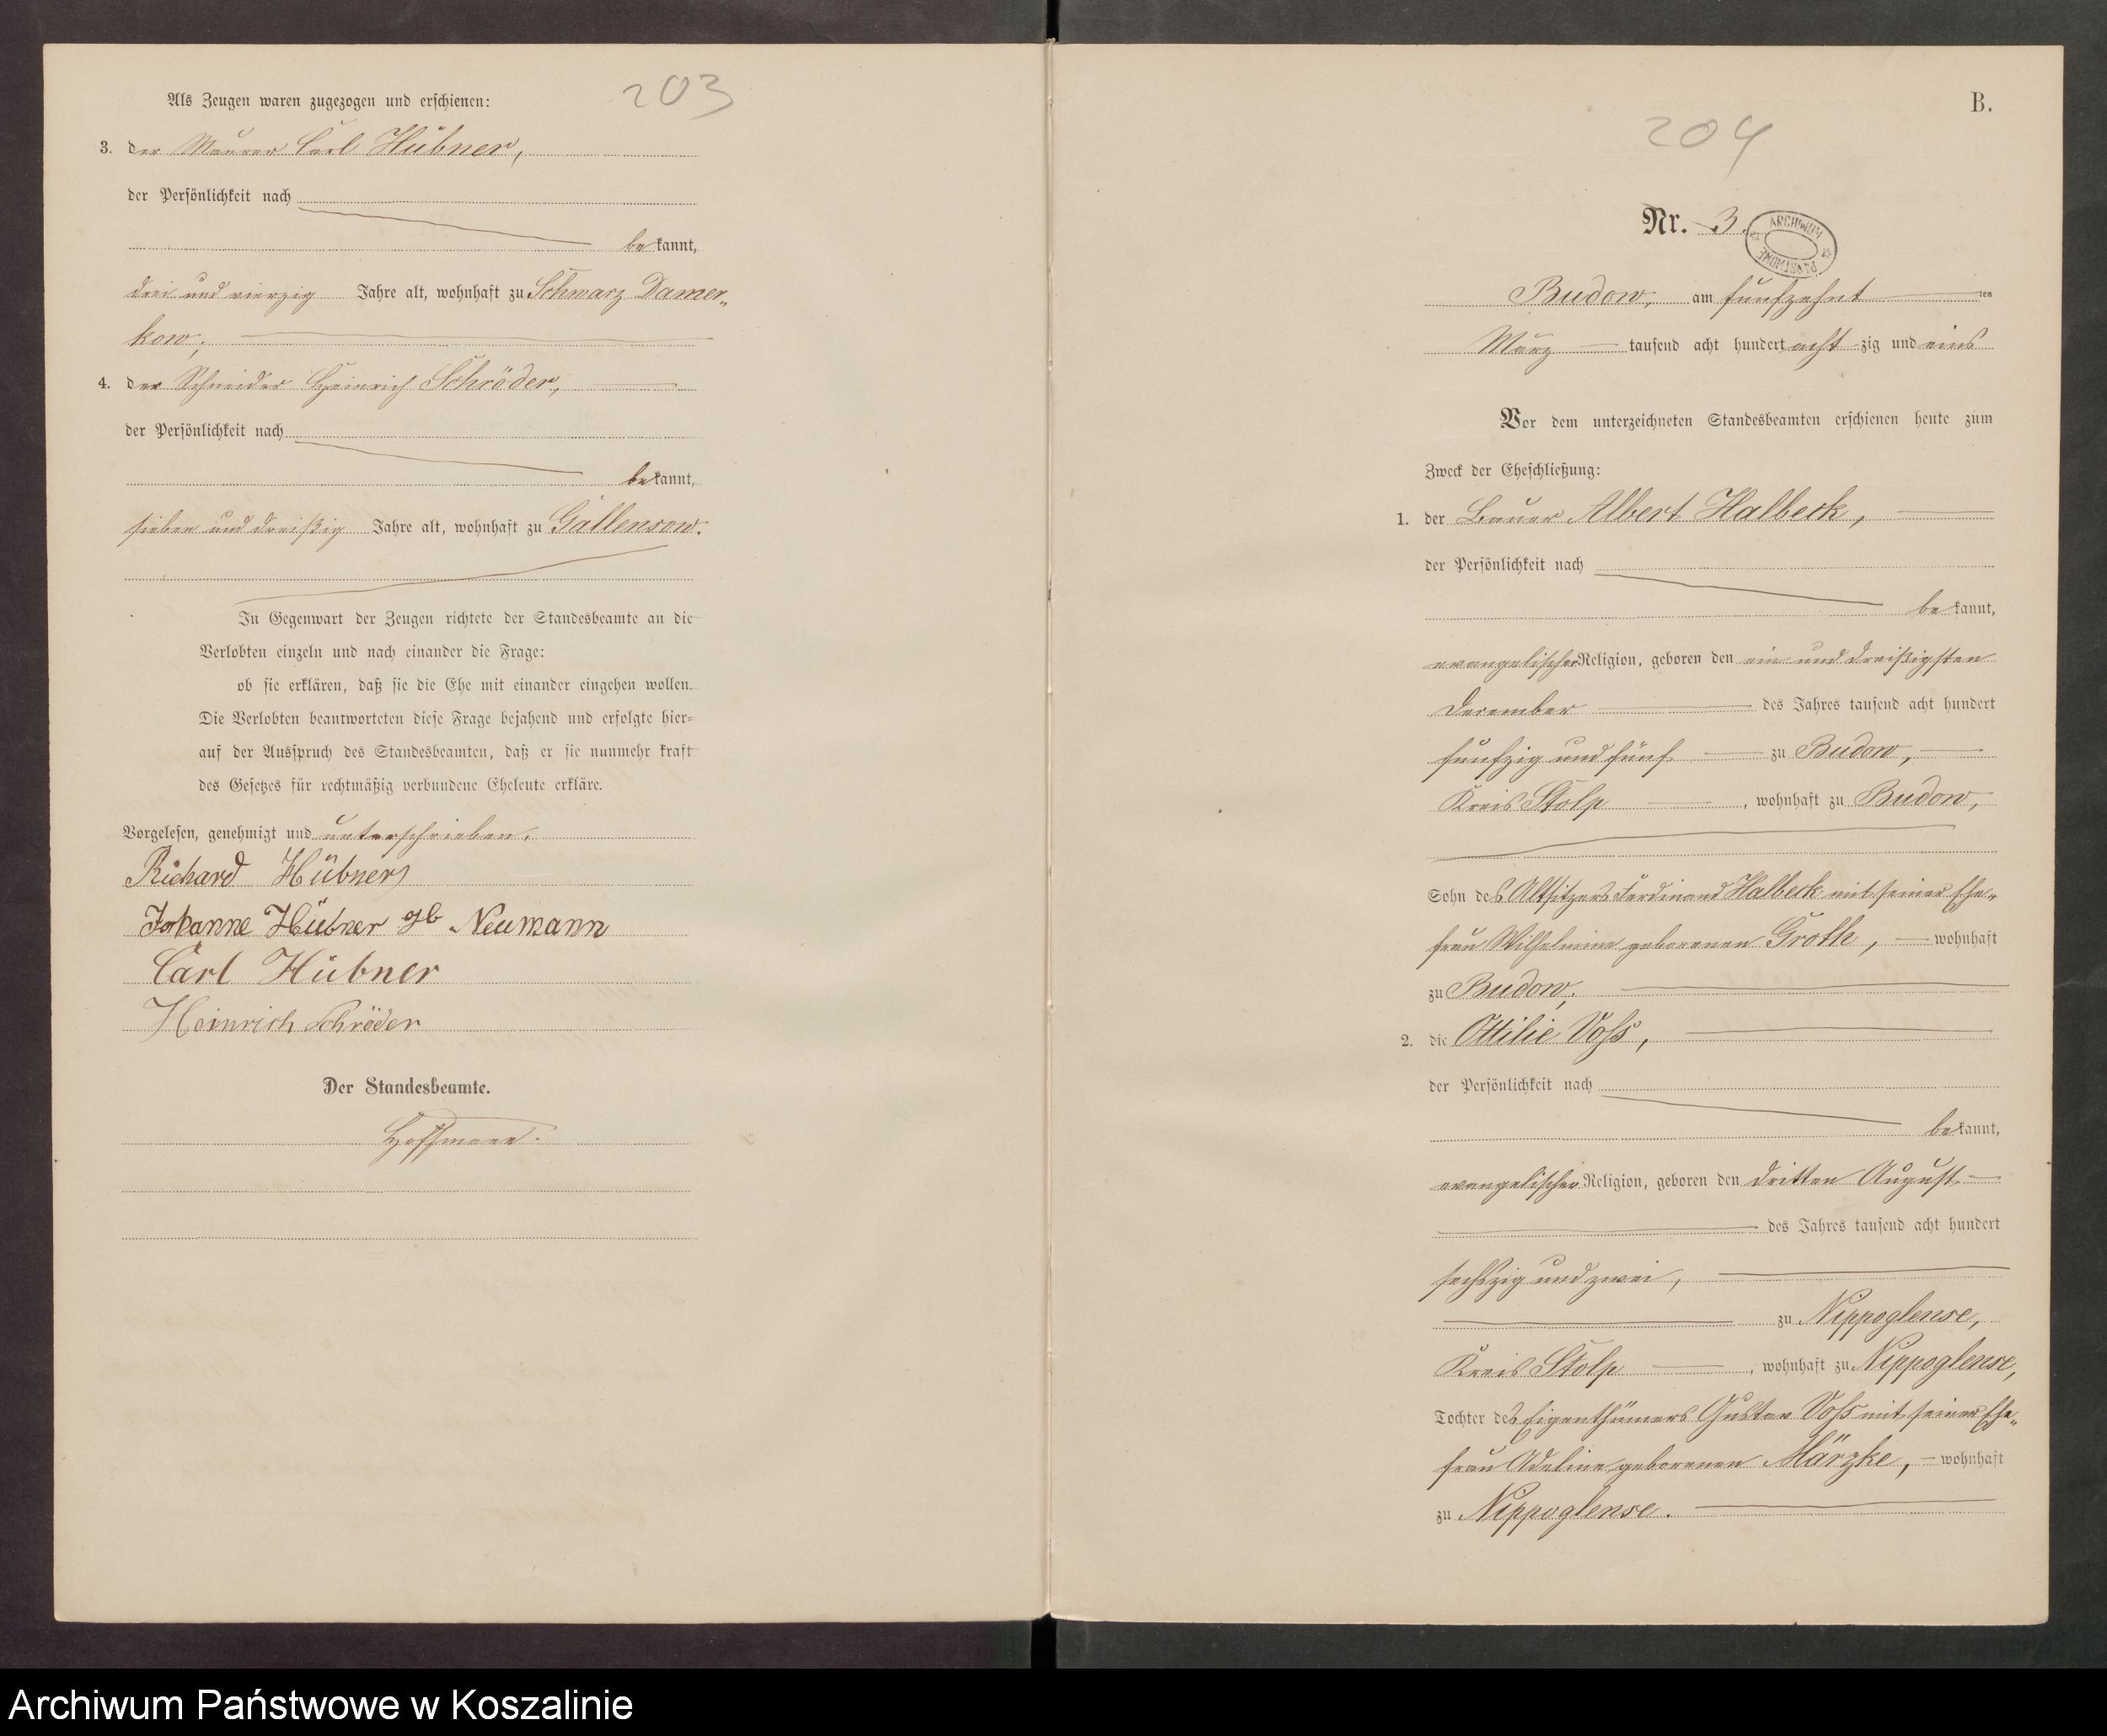 203
Als Zeugen waren zugezogen und erschienen:
3. der Maurer Carl Hübner,
der Persönlichkeit nach
bekannt,
drei und vierzig Jahre alt, wohnhaft zu Schwarz Damer„
kow;
4. der Schneider Heinrich Schröder,
der Persönlichkeit nach
bekannt,
sieben und dreißig Jahre alt, wohnhaft zu Gallensow.
In Gegenwart der Zeugen richtete der Standesbeamte an die
Verlobten einzeln und nach einander die Frage:
ob sie erklären, daß sie die Ehe mit einander eingehen wollen.
Die Verlobten beantworteten diese Frage bejahend und erfolgte hier=
auf der Ausspruch des Standesbeamten, daß er sie nunmehr kraft
des Gesetzes für rechtmäßig verbundene Eheleute erkläre.
Vorgelesen, genehmigt und unterschrieben.
Richard Hübner
Johanne Hübner gb Neumann
Carl Hübner
Heinrich Schröder
Der Standesbeamte.
Hoffmann.
B.
204
Nr. 3.
ARCHIWUM PAŃSTWOWE
Budow, am fünfzehnt ten
März tausend acht hundert acht zig und eins
Vor dem unterzeichneten Standesbeamten erschienen heute zum
Zweck der Eheschließung:
1. der Bauer Albert Halbeck,
der Persönlichkeit nach
bekannt,
evangelischer Religion, geboren den ein und dreißigsten
December des Jahres tausend acht hundert
fünfzig und fünf zu Budow,
Kreis Stolp, wohnhaft zu Budow,
Sohn des Altsitzers Ferdinand Halbeck mit seiner Ehe„
frau Wilhelmine geborenen Groth, wohnhaft
zu Budow;
2. die Ottilie Voß,
der Persönlichkeit nach
bekannt,
evangelischer Religion, geboren den dritten August
des Jahres tausend acht hundert
sechszig und zwei,
zu Nippoglense,
Kreis Stolp, wohnhaft zu Nippoglense,
Tochter des Eigenthümers Gustav Voß mit seiner Ehe„
frau Adeline geborenen Märzke, wohnhaft
zu Nippoglense.
Archiwum Państwowe w Koszalinie